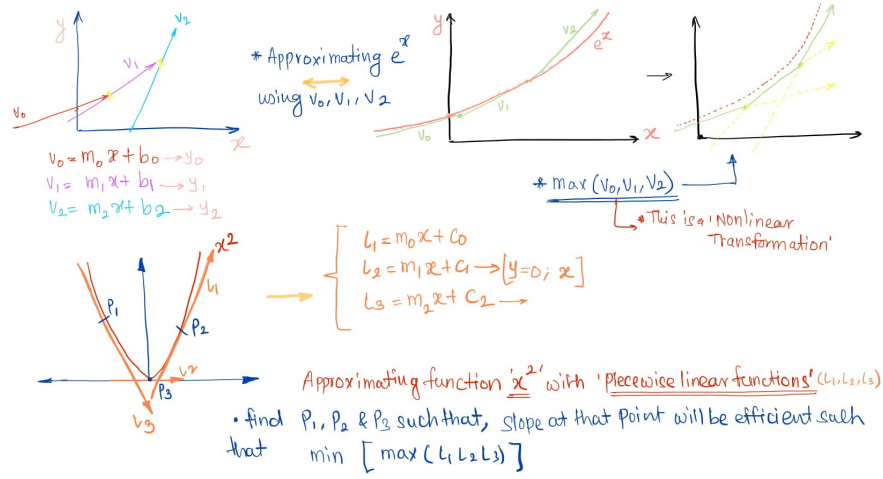 y
V₂
V₁
V₀
x
V₀ = m₀ x + b₀ → y₀
V₁ = m₁ x + b₁ → y₁
V₂ = m₂ x + b₂ → y₂
* Approximating eˣ
using V₀, V₁, V₂
y
V₂
eˣ
V₁
V₀
x
* max (V₀, V₁, V₂)
* This is a 'Nonlinear
Transformation'
x²
L₁
P₁
P₂
L₂
P₃
L₃
L₁ = m₀x + C₀
L₂ = m₁x + C₁ → [y=0; x]
L₃ = m₂x + C₂ →
Approximating function 'x²' with 'piecewise linear functions' (L₁, L₂, L₃)
• find P₁, P₂ & P₃ such that, slope at that point will be efficient such
that min [max (L₁ L₂ L₃)]